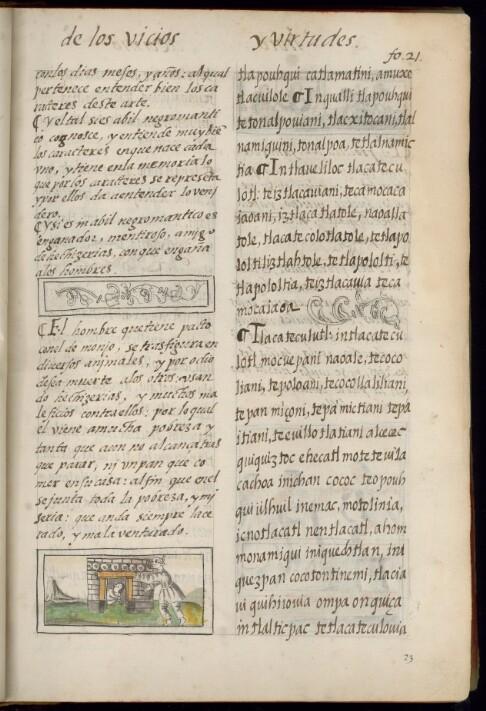 de los vicios
y virtudes.
fo. 21.
con los dias meses, y años: al qual
pertenece entender bien los ca
racteres deste arte.
¶ Y el tal si es abil negromanti
co cognosce, y entiende muy bie
los caracteres en que nace cada
vno, y tiene en la memoria lo
que por los caracteres se representa
y por ellos da a entender lo veni
dero.
¶ Y si es inabil negromantico es
engañador, mentiroso, amigo
de hechizerias, con que engaña
a los hombres.
¶ El hombre que tiene pacto
con el demonio, se trasfigura en
diversos animales, y por odio
desea muerte a los otros, vsan
do hechizerias, y muchos ma
leficios contra ellos: por lo qual
el viene a mucha pobreza, y
tanta que aun no alcança tras
que parar, ni vn pan que co
mer en su casa: al fin que en el
se junta toda la pobreza, y mi
seria: que anda siempre lace
rado, y mal aventurado.
tlapouhqui ca tlamatini, amuxe
tlacuilole ¶ In qualli tlapouhqui
tetonalpouiani, tlacxitocani, tlal
namiquini, tonalpoa, tetlalnamic
tia ¶ In tlaueliloc tlacatecu
lotl: teiztlacauiani, teca mocaca
iaoani, iztlaca tlatole, naoalla
tole, tlacatecolotlatole, tetlapo
lolti iztlahtole, tetlapololti, te
tlapololtia, teiztlacauia teca
mocaiaoa
¶ Tlacatecululutl: in tlacatecu
lotl mocuepani naoale, tecoco
liani, tepoloani, tecocollaliliani,
tepan miçoni, tepa mictiani tepa
itiani, teeuillotlatiani
quiquiztoc ehecatl moteteuila
cachoa in ichan cococ teopouh
qui iilhuil inemac, motolinia,
icnotlacatl nentlacatl, ahom
monamiqui in iquechtlan, in i
quezpan cocotontinemi, tlacia
ui quihiiouia ompa onquiça
in tlalticpac tetlacateculouia
23